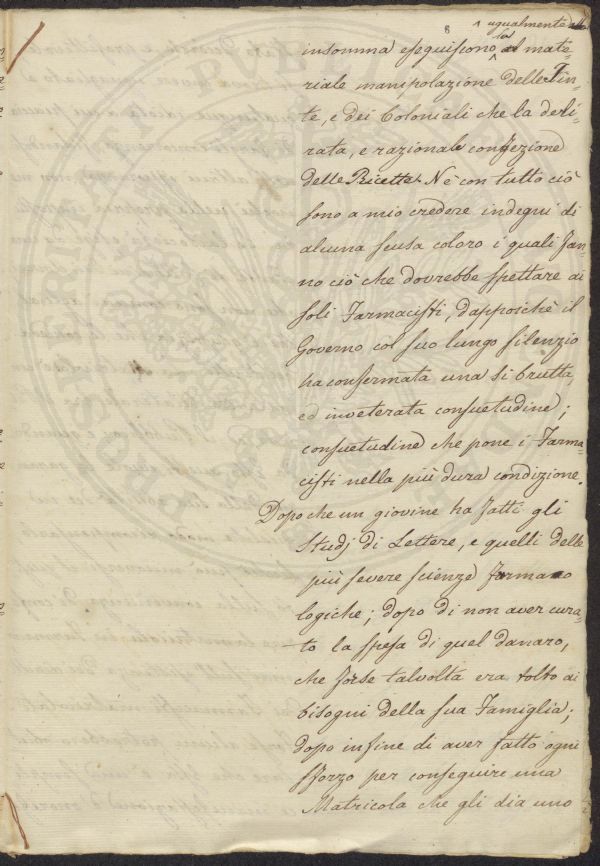 8 ^ ugualmente
insomma eseguiscono ^ la mate-
riale manipolazione delle Tin-
te, e dei Coloniali che la deli-
rata, e razionale confezione
delle Ricette. Nè con tutto ciò
sono a mio credere indegni di
alcuna scusa coloro i quali fan-
no ciò che dovrebbe spettare ai
soli Farmacisti, dappoichè il
Governo col suo lungo silenzio
ha confermata una si brutta,
ed inveterata consuetudine;
consuetudine che pone i Farma-
cisti nella più dura condizione.
Dopo che un giovine ha fatti gli
Studj di Lettere, e quelli delle
più severe scienze Farmaco
logiche; dopo di non aver cura-
to la spesa di quel danaro,
che forse talvolta era tolto ai
bisogni della sua Famiglia;
dopo infine di aver fatto ogni
sforzo per conseguire una
Matricola che gli dia uno